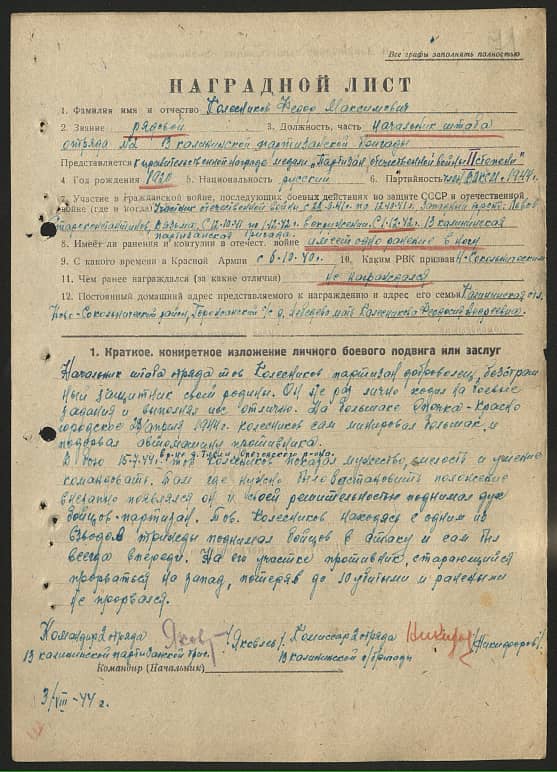 Все графы заполнять полностью
НАГРАДНОЙ ЛИСТ
1. Фамилия имя и отчество Колесников Федор Максимович
2. Звание рядовой 3. Должность, часть начальник штаба
отряда № 13 калининской партизанской бригады
Представляется к правительственной награде медали "Партизан отечественной войны II степени"
4. Год рождения 1920 5. Национальность русский 6. Партийность 1944г.
7. Участие в гражданской войне, последующих боевых действиях по защите СССР и отечественной
войне (где и когда) Участник отечественной войны с по 12.10.41г. Западный фронт.
Вязьма, С 12-10-41 по 1-12-42г. в окружении. С 1-12-42г. 13 калининская
партизанская бригада.
8. Имеет ли ранения и контузии в отечест. войне имеет одно ранение в ногу
9. С какого времени в Красной Армии с 6-10-40г. 10. Каким РВК призван Н-Сокольническим
11. Чем ранее награждался (за какие отличия) не награждался
12. Постоянный домашний адрес представляемого к награждению и адрес его семьи Калининская обл,
Ново-Сокольнический район, с/с д. мать Колесникова Феодосия Андреевна.
1. Краткое, конкретное изложение личного боевого подвига или заслуг
Начальник штаба отряда тов Колесников партизан доброволец, бесстраш
ный защитник своей родины. Он не раз лично ходил на боевые
задания и выполнял их отлично. На большаке Опочка-Красно
городское апреля 1944г. Колесников сам минировал большак, и
подорвал автомашину противника.
В бою 15-7-44г. в р-не д. Опочецкого р-она. тов Колесников показал мужество, смелость и умение
командовать. Там где нужно было восстановить положение
внезапно появлялся он и своей решительностью поднимал дух
бойцов-партизан. Тов. Колесников находясь с одним из
взводов трижды поднимал бойцов в атаку и сам был
всегда впереди. На его участке противник, старающийся
прорваться на запад, потеряв до 10 убитыми и ранеными
не прорвался.
Командир 2 отряда /Яковлев/ Комиссар 2 отряда /Никифоров/
13 калининской партизанской бриг. 13 калининской п/бригады
Командир (Начальник)
3/VIII-44г.